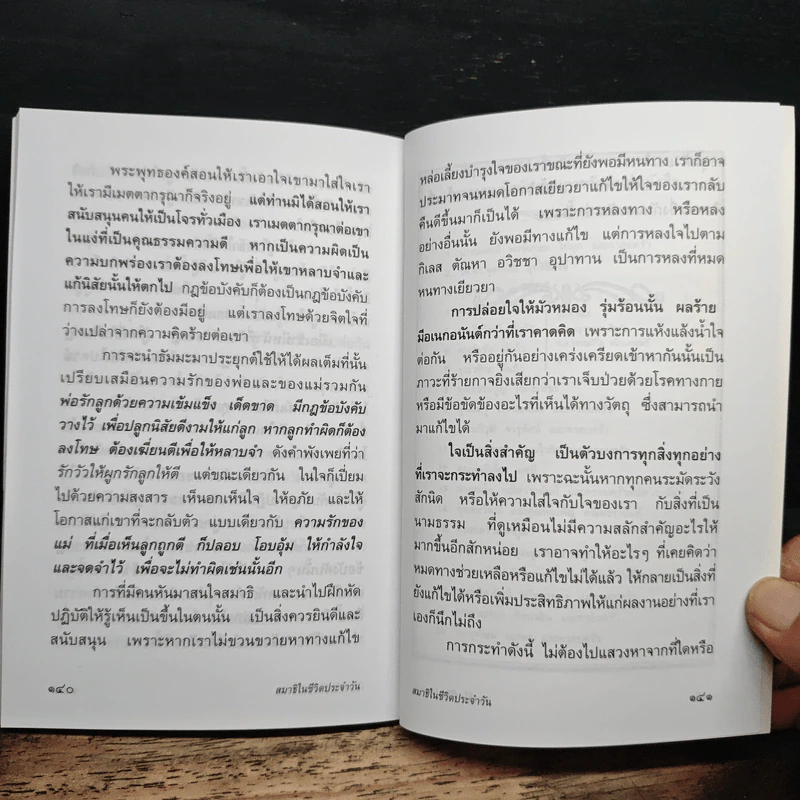 พระพุทธองค์สอนให้เราเอาใจเขามาใส่ใจเรา
ให้เรามีเมตตากรุณาก็จริงอยู่ แต่ท่านมิได้สอนให้เรา
สนับสนุนคนให้เป็นโจรทั่วเมือง เราเมตตากรุณาต่อเขา
ในแง่ที่เป็นคุณธรรมความดี หากเป็นความผิดเป็น
ความบกพร่องเราต้องลงโทษเพื่อให้เขาหลาบจำและ
แก้นิสัยนั้นให้ตกไป กฎข้อบังคับก็ต้องเป็นกฎข้อบังคับ
การลงโทษก็ยังต้องมีอยู่ แต่เราลงโทษด้วยจิตใจที่
ว่างเปล่าจากความคิดร้ายต่อเขา
การจะนำธัมมะมาประยุกต์ใช้ให้ได้ผลเต็มที่นั้น
เปรียบเสมือนความรักของพ่อและของแม่รวมกัน
พ่อรักลูกด้วยความเข้มแข็ง เด็ดขาด มีกฎข้อบังคับ
วางไว้ เพื่อปลูกนิสัยดีงามให้แก่ลูก หากลูกทำผิดก็ต้อง
ลงโทษ ต้องเฆี่ยนตีเพื่อให้หลาบจำ ดังคำพังเพยที่ว่า
รักวัวให้ผูกรักลูกให้ตี แต่ขณะเดียวกัน ในใจก็เปี่ยม
ไปด้วยความสงสาร เห็นอกเห็นใจ ให้อภัย และให้
โอกาสแก่เขาที่จะกลับตัว แบบเดียวกับ ความรักของ
แม่ ที่เมื่อเห็นลูกถูกตี ก็ปลอบ โอบอุ้ม ให้กำลังใจ
และจดจำไว้ เพื่อจะไม่ทำผิดเช่นนั้นอีก
การที่มีคนหันมาสนใจสมาธิ และนำไปฝึกหัด
ปฏิบัติให้รู้เห็นเป็นขึ้นในตนนั้น เป็นสิ่งควรยินดีและ
สนับสนุน เพราะหากเราไม่ขวนขวายหาทางแก้ไข
๑๔๐ สมาธิในชีวิตประจำวัน
หล่อเลี้ยงบำรุงใจของเราขณะที่ยังพอมีหนทาง เราก็อาจ
ประมาทจนหมดโอกาสเยียวยาแก้ไขให้ใจของเรากลับ
คืนดีขึ้นมาก็เป็นได้ เพราะการหลงทาง หรือหลง
อย่างอื่นนั้น ยังพอมีทางแก้ไข แต่การหลงใจไปตาม
กิเลส ตัณหา อวิชชา อุปาทาน เป็นการหลงที่หมด
หนทางเยียวยา
การปล่อยใจให้มัวหมอง รุ่มร้อนนั้น ผลร้าย
มีอเนกอนันต์กว่าที่เราคาดคิด เพราะการแห้งแล้งน้ำใจ
ต่อกัน หรืออยู่กันอย่างเคร่งเครียดเข้าหากันนั้นเป็น
ภาวะที่ร้ายกาจยิ่งเสียกว่าเราเจ็บป่วยด้วยโรคทางกาย
หรือมีข้อขัดของอะไรที่เห็นได้ทางวัตถุ ซึ่งสามารถนำ
มาแก้ไขได้
ใจเป็นสิ่งสำคัญ เป็นตัวบงการทุกสิ่งทุกอย่าง
ที่เราจะกระทำลงไป เพราะฉะนั้นหากทุกคนระมัดระวัง
สักนิด หรือให้ความใส่ใจกับใจของเรา กับสิ่งที่เป็น
นามธรรม ที่ดูเหมือนไม่มีความสลักสำคัญอะไรให้
มากขึ้นอีกสักหน่อย เราอาจทำให้อะไรๆ ที่เคยคิดว่า
หมดทางช่วยเหลือหรือแก้ไขไม่ได้แล้ว ให้กลายเป็นสิ่งที่
ยังแก้ไขได้หรือเพิ่มประสิทธิภาพให้แก่ผลงานอย่างที่เรา
เองก็นึกไม่ถึง
การกระทำดังนี้ ไม่ต้องไปแสวงหาจากที่ใดหรือ
สมาธิในชีวิตประจำวัน ๑๔๑